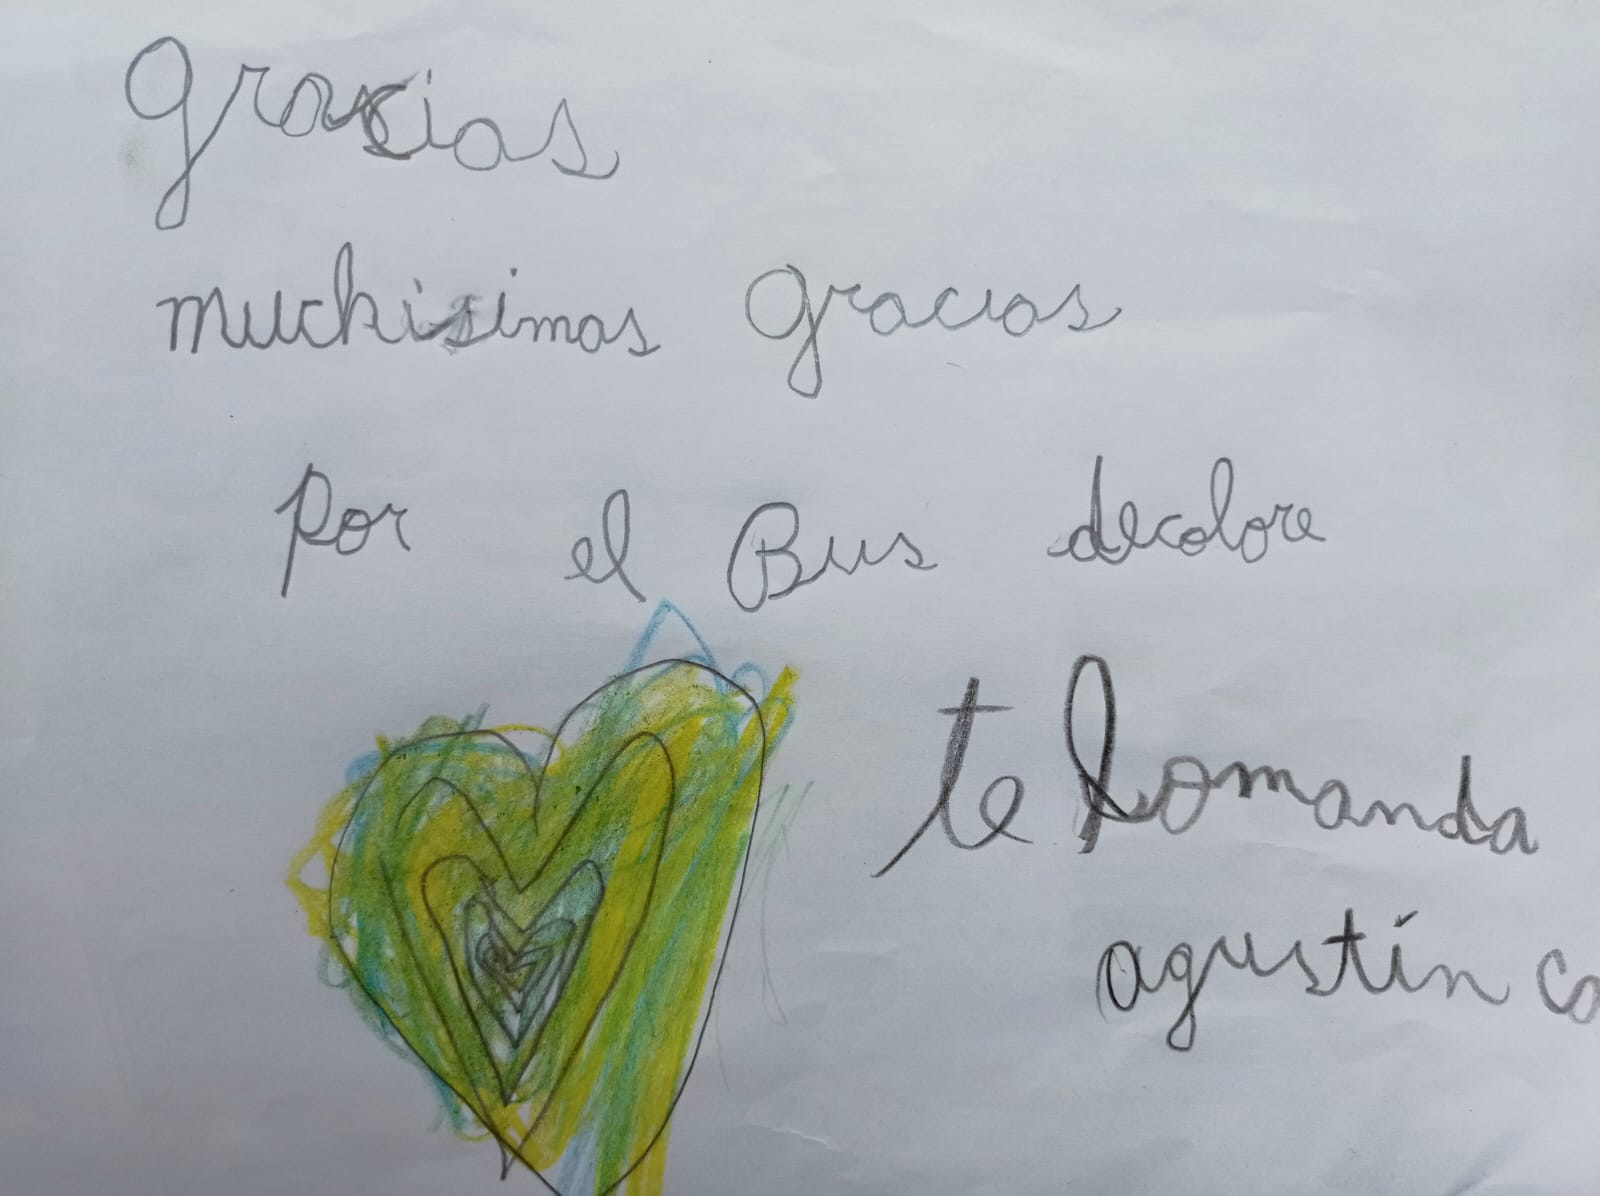 gracias
muchisimas gracias
por el Bus decolore
te lomanda
agustín co